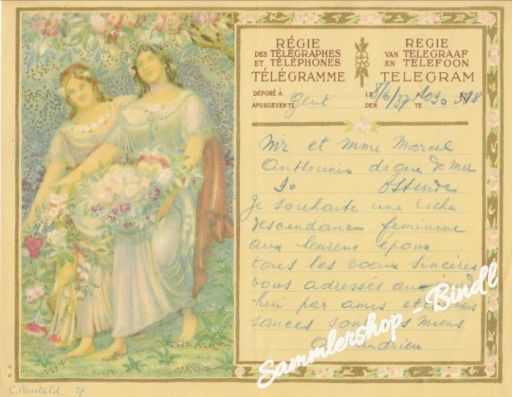 RÉGIE
DES TÉLÉGRAPHES
ET TÉLÉPHONES
TÉLÉGRAMME
REGIE
VAN TELEGRAAF
EN TELEFOON
TELEGRAM
DÉPOSÉ À
AFGEGEVEN TE
Gent
LE
DEN
8/6/37
À
TE
1030
Mr et Mme Marcel
Antheunis digue de mer
30 Ostende
Je souhaite une riche
descendance feminine
aux heureux epoux
tous les voeux sincères
vous adressés
hui par amis et
sances les miens
Sammlershop - Bindl
C. Montald